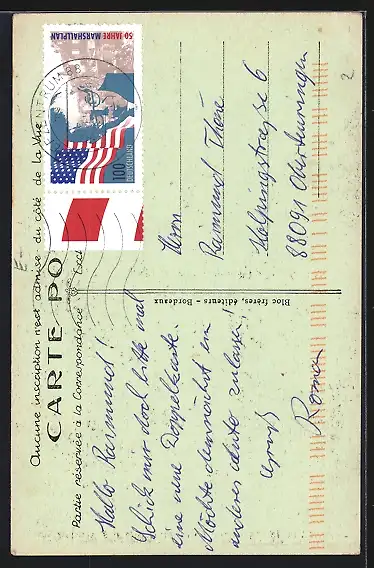 Aucune inscription n'est admise du côté de la Vue
CARTE PO
Partie réservée à la Correspondance
Bloc frères, éditeurs - Bordeaux
50 JAHRE MARSHALLPLAN
100
DEUTSCHLAND
Hallo Raimund!
Schick mir doch bitte mal
eine neue Doppelkarte.
Möchte demnächst ein
anderes Auto zulassen!
Gruß
Roman
Herrn
Raimund
Helpingstraße 6
88091 Oberteuringen
2